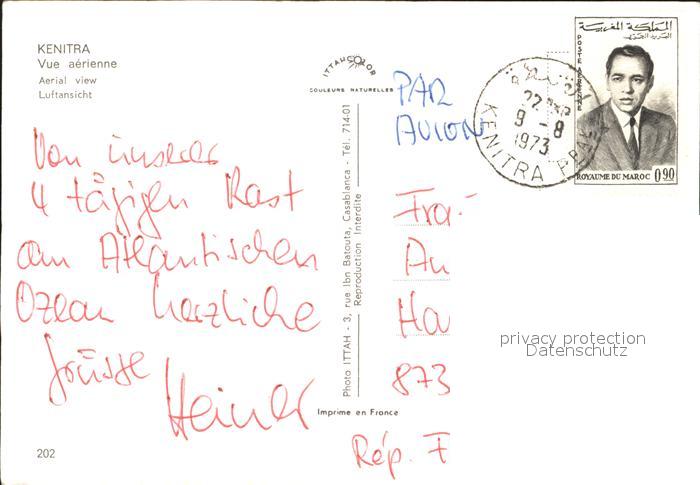 KENITRA
Vue aérienne
Aerial view
Luftansicht
ITTAHCOLOR
COULEURS NATURELLES
PAR
AVION
المملكة المغربية
البريد الجوي
POSTE AERIENNE
ROYAUME DU MAROC 0,90
9-8
1973
KENITRA
Von unserer
4 tägigen Rast
am Atlantischen
Ozean herzliche
Grüsse
Heiner
Photo ITTAH - 3, rue Ibn Batouta, Casablanca - Tél. 714-01
Reproduction Interdite
Imprime en France
Fra
An
Ha
873
Rép. F
privacy protection
Datenschutz
202